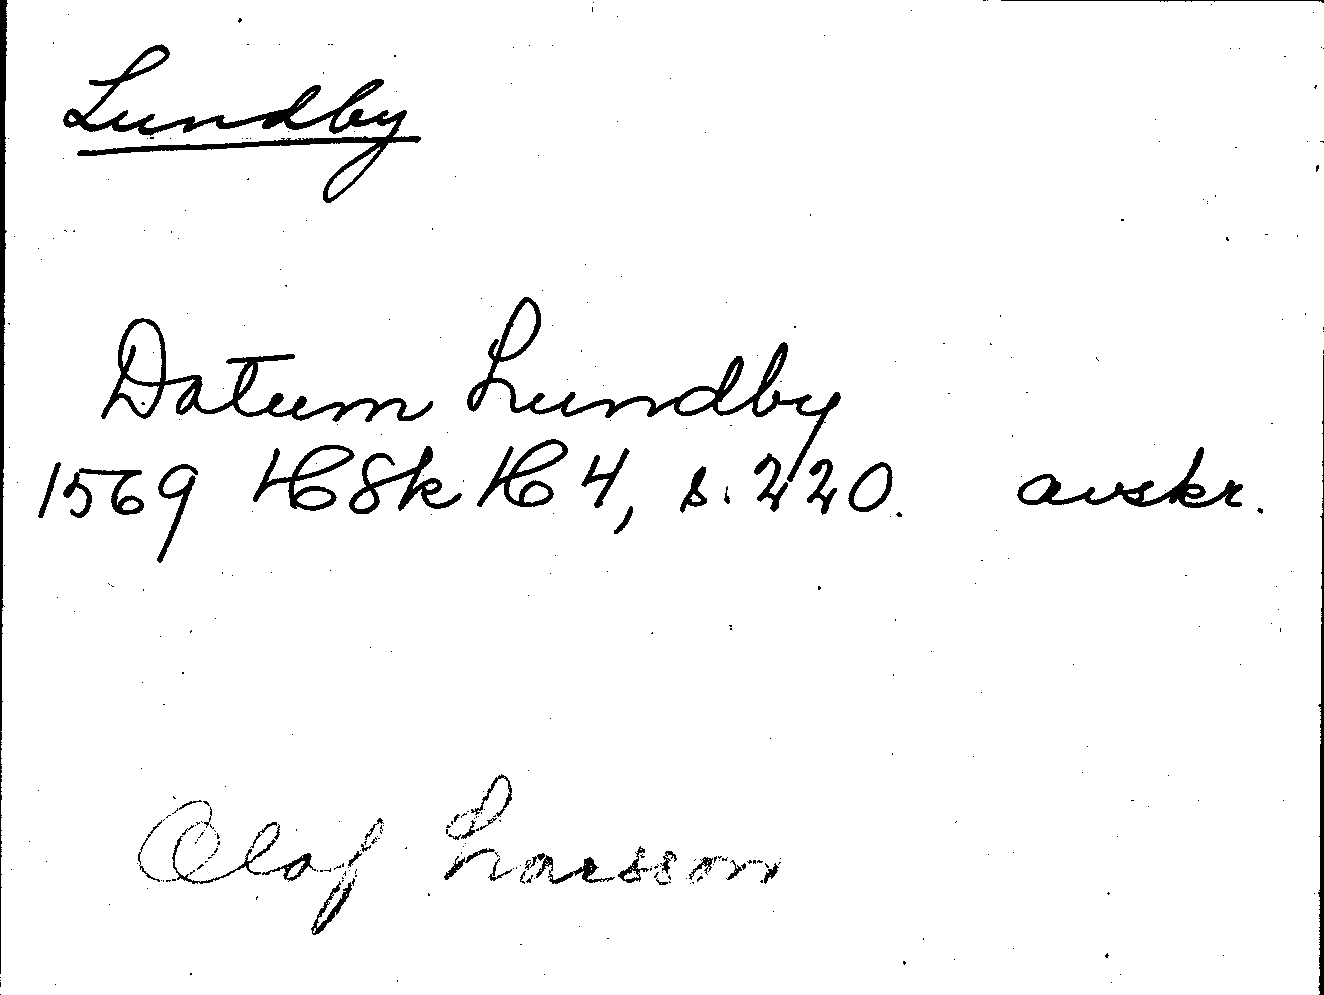 Lundby
Datum Lundby
1569 HSk H 4, s. 220. avskr.
Olof Larsson